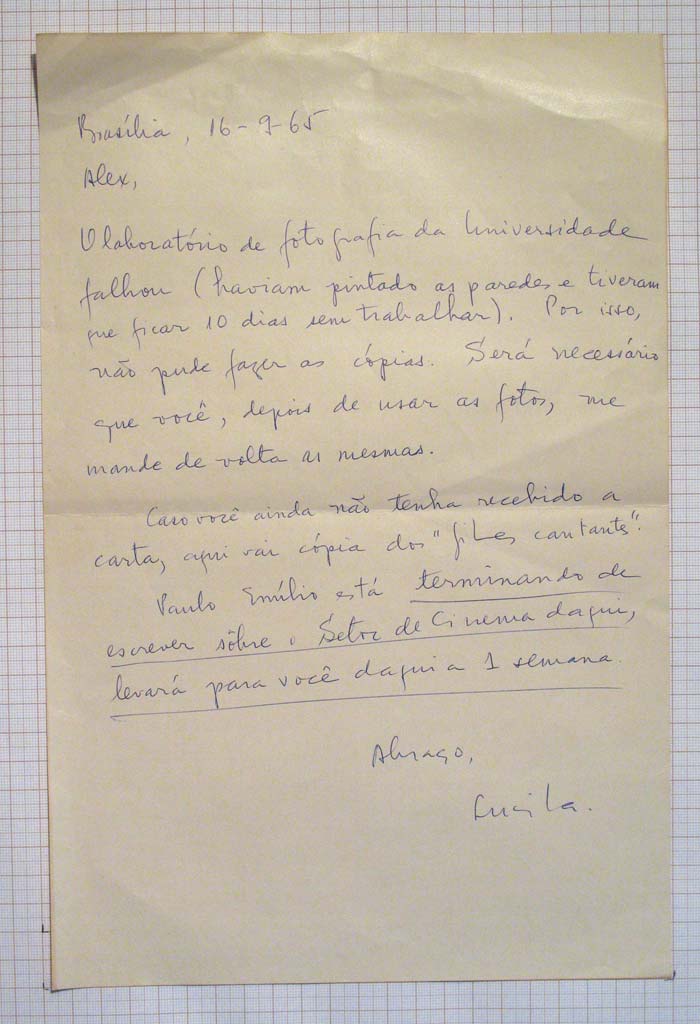 Brasília, 16-9-65
Alex,
O laboratório de fotografia da Universidade
falhou (haviam pintado as paredes e tiveram
que ficar 10 dias sem trabalhar). Por isso,
não pude fazer as cópias. Será necessário
que você, depois de usar as fotos, me
mande de volta as mesmas.
Caso você ainda não tenha recebido a
carta, aqui vai cópia dos "filmes cantantes".
Paulo Emílio está terminando de
escrever sôbre o Setor de Cinema daqui,
levará para você daqui a 1 semana.
Abraço,
Lucila.